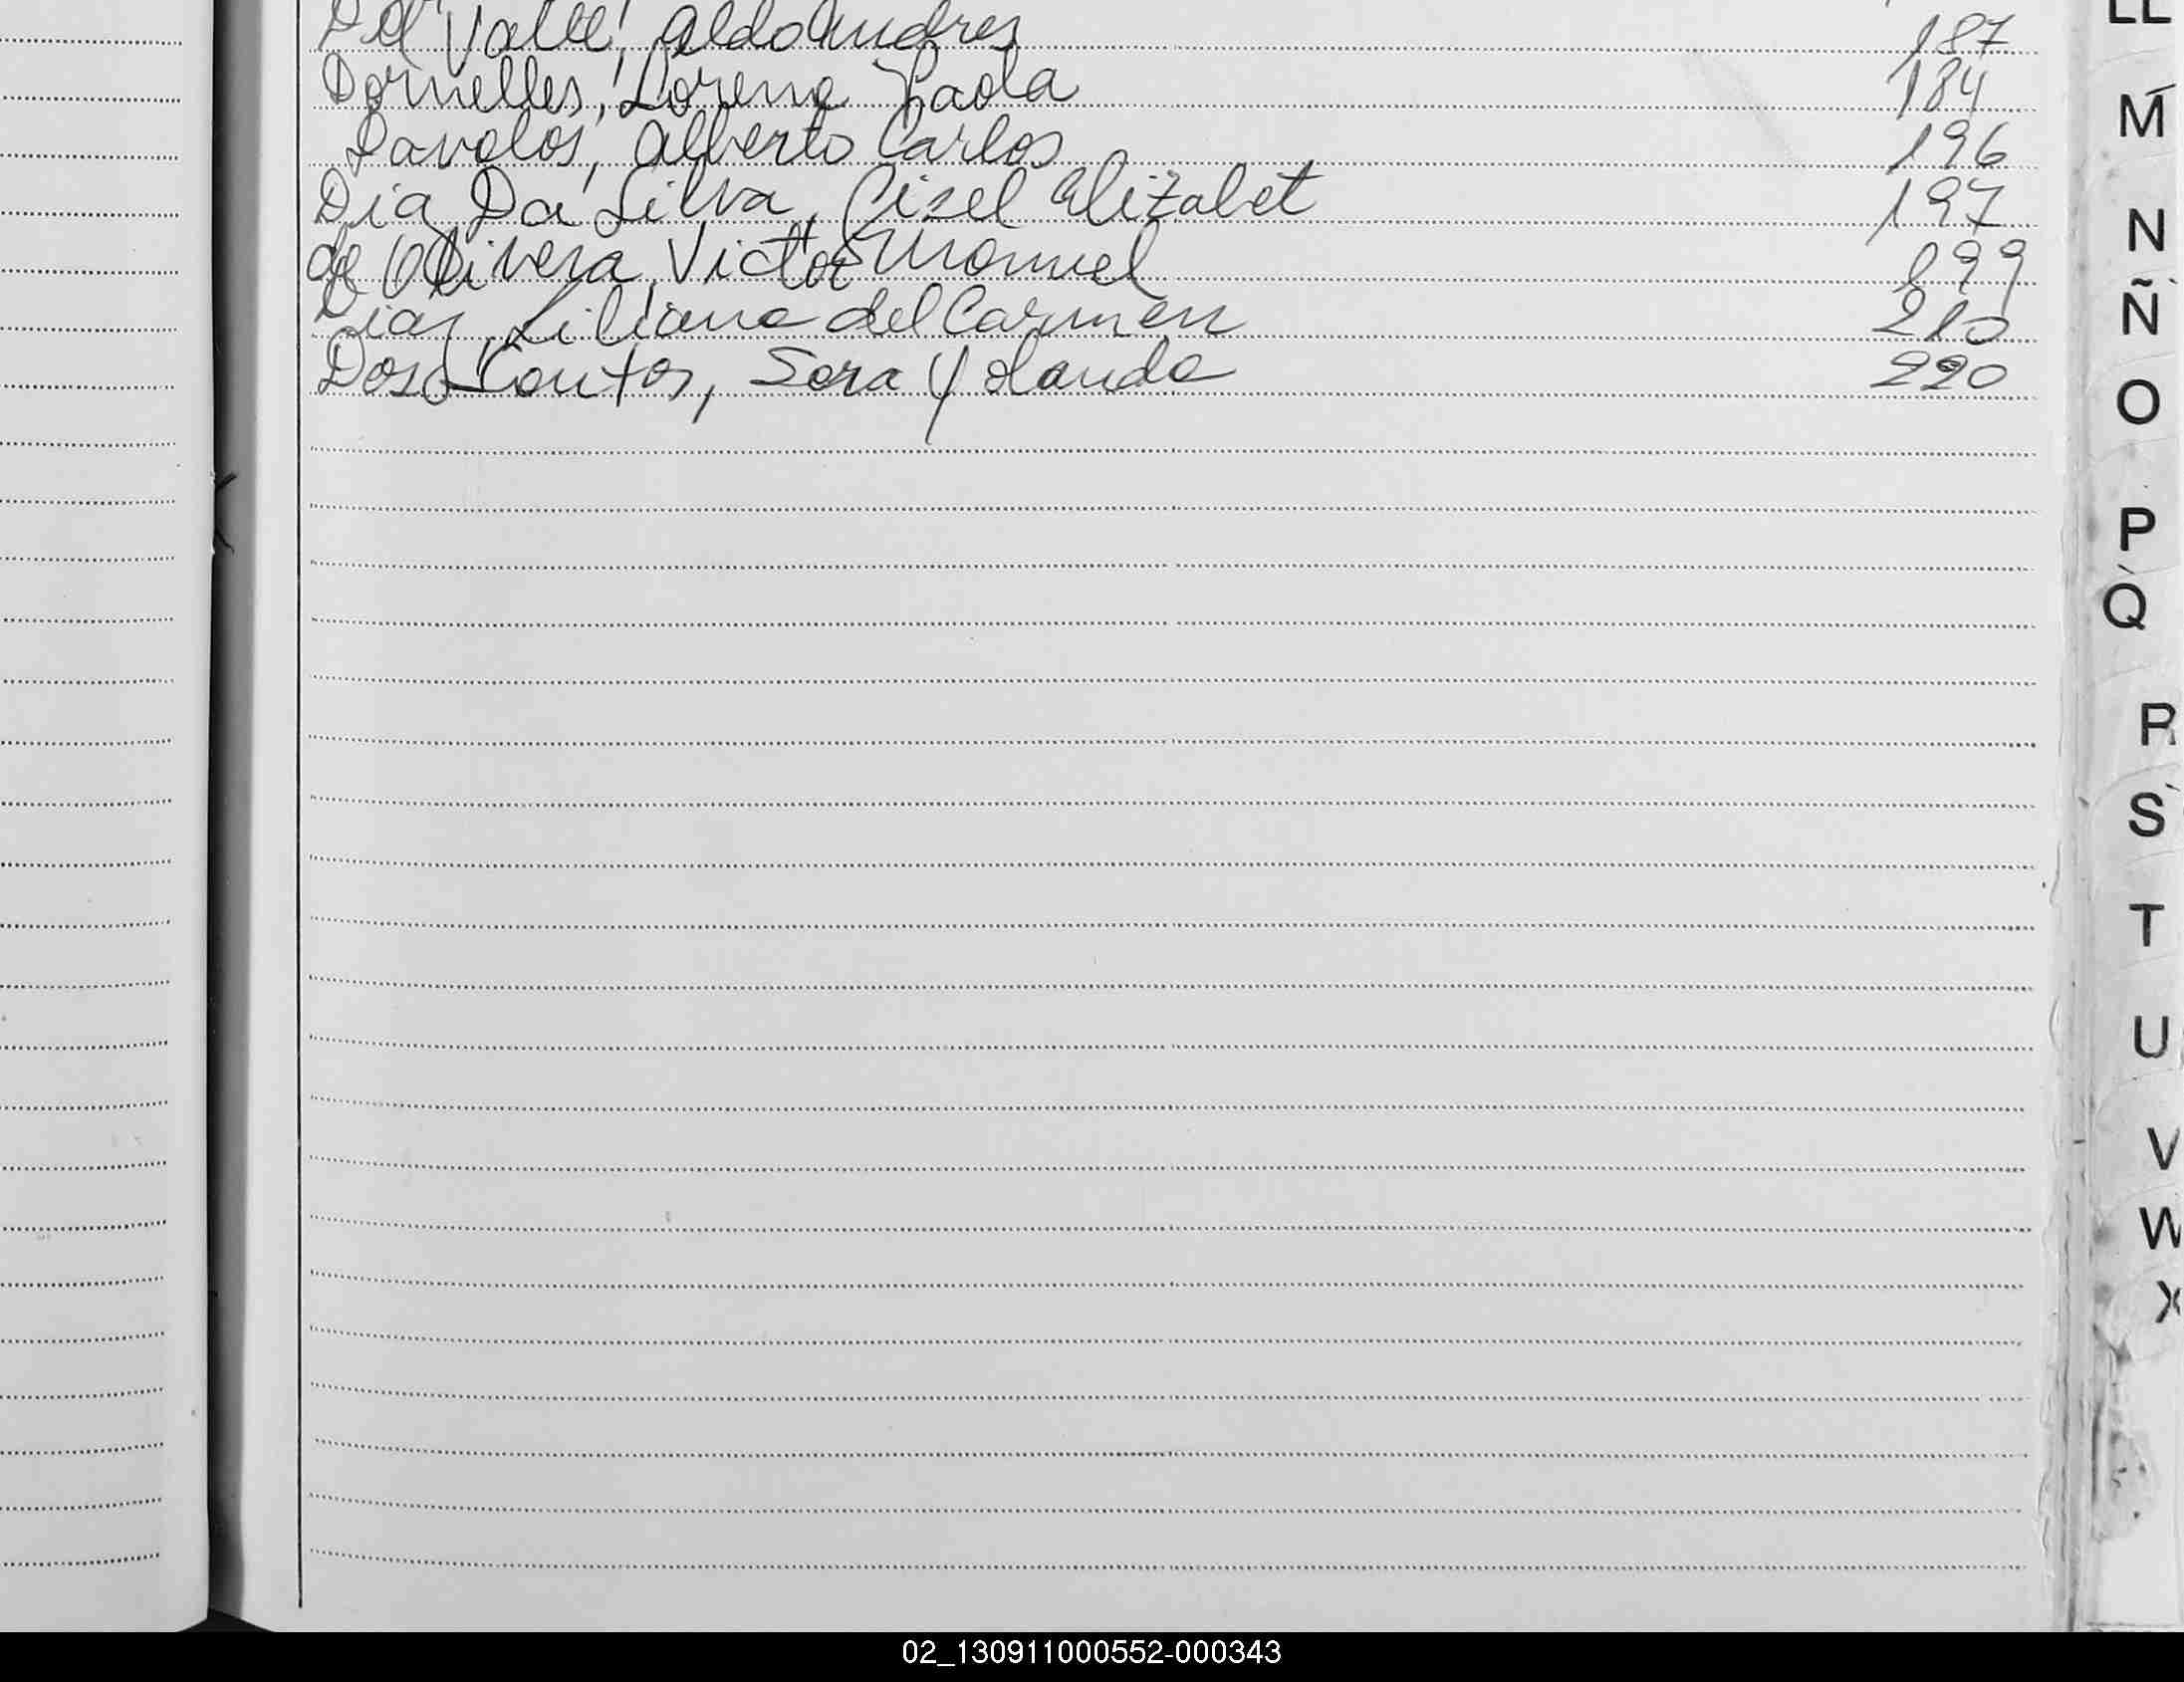 Del Valle, Aldo Andres 187
Dornelles, Lorena Paola 184
Davalos, Alberto Carlos 196
Dia Da Silva, Gisel Elizabet 197
de Olivera, Victor Manuel 199
Dias, Liliana del Carmen 210
Dos Santos, Sara Yolanda 220
LL
M
N
Ñ
O
P
Q
R
S
T
U
V
W
X
02_130911000552-000343